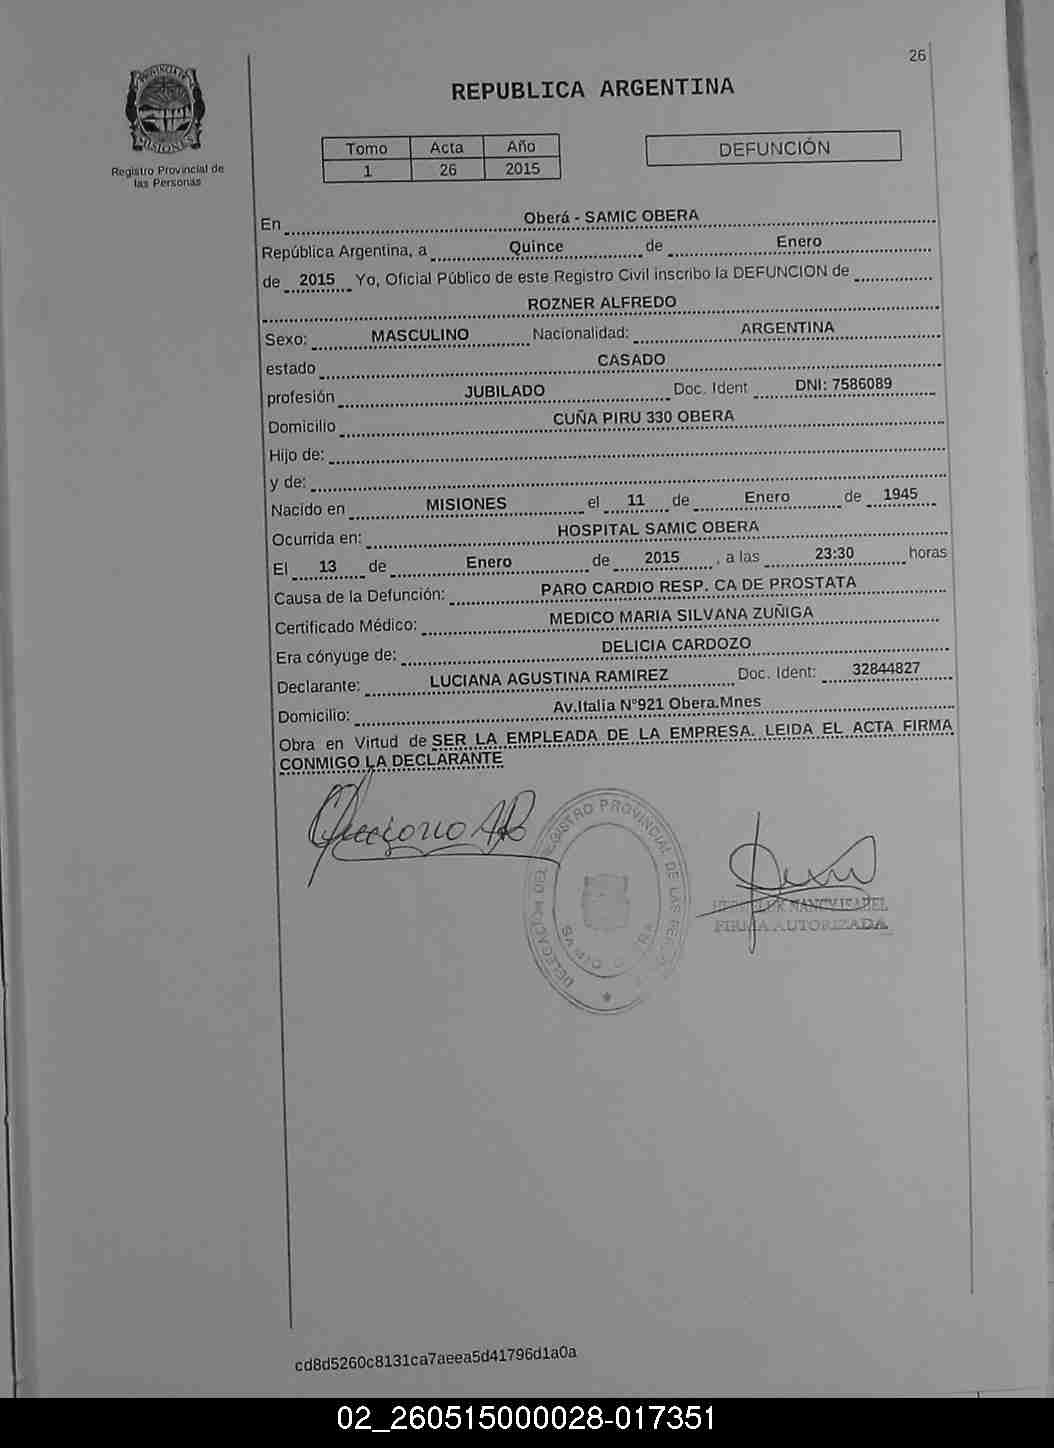 26
PROVINCIA DE
MISIONES
Registro Provincial de
las Personas
REPUBLICA ARGENTINA
Tomo Acta Año
1 26 2015
DEFUNCIÓN
En Oberá - SAMIC OBERA
República Argentina, a Quince de Enero
de 2015 Yo, Oficial Público de este Registro Civil inscribo la DEFUNCION de
ROZNER ALFREDO
Sexo: MASCULINO Nacionalidad: ARGENTINA
estado CASADO
profesión JUBILADO Doc. Ident DNI: 7586089
Domicilio CUÑA PIRU 330 OBERA
Hijo de:
y de:
Nacido en MISIONES el 11 de Enero de 1945
Ocurrida en: HOSPITAL SAMIC OBERA
El 13 de Enero de 2015 , a las 23:30 horas
Causa de la Defunción: PARO CARDIO RESP. CA DE PROSTATA
Certificado Médico: MEDICO MARIA SILVANA ZUÑIGA
Era cónyuge de: DELICIA CARDOZO
Declarante: LUCIANA AGUSTINA RAMIREZ Doc. Ident: 32844827
Domicilio: Av.Italia N°921 Obera.Mnes
Obra en Virtud de SER LA EMPLEADA DE LA EMPRESA. LEIDA EL ACTA FIRMA
CONMIGO LA DECLARANTE
DELEGACION DEL REGISTRO PROVINCIAL DE LAS
NANCY ISABEL
FIRMA AUTORIZADA
cd8d5260c8131ca7aeea5d41796d1a0a
02_260515000028-017351